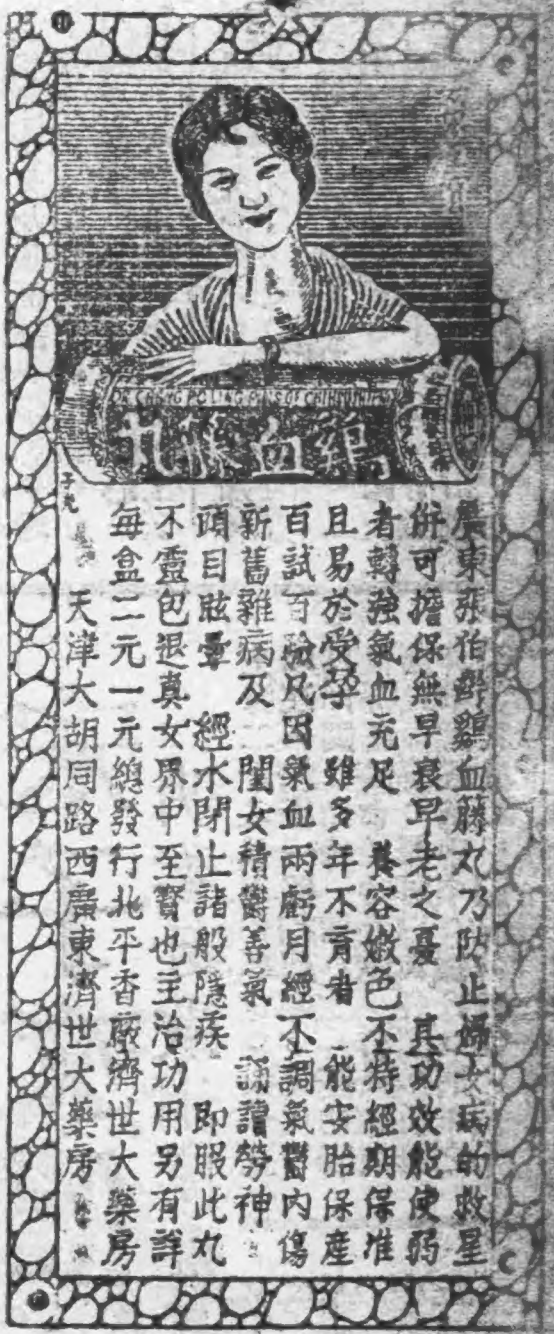 鷄血藤丸
廣東張伯齡鷄血藤丸乃防止婦女病的救星
併可擔保無早衰早老之憂 其功效能使弱
者轉強氣血充足 養容嫩色不特經期保准
且易於受孕 雖多年不育者 能安胎保產
百試百驗凡因氣血兩虧月經不調氣鬱內傷
新舊雜病及 閨女積鬱善氣 誦讀勞神
頭目眩暈 經水閉止諸般隱疾 即服此丸
不靈包退真女界中至寶也主治功用另有詳
每盒二元一元總發行北平香廠濟世大藥房
天津大胡同路西廣東濟世大藥房